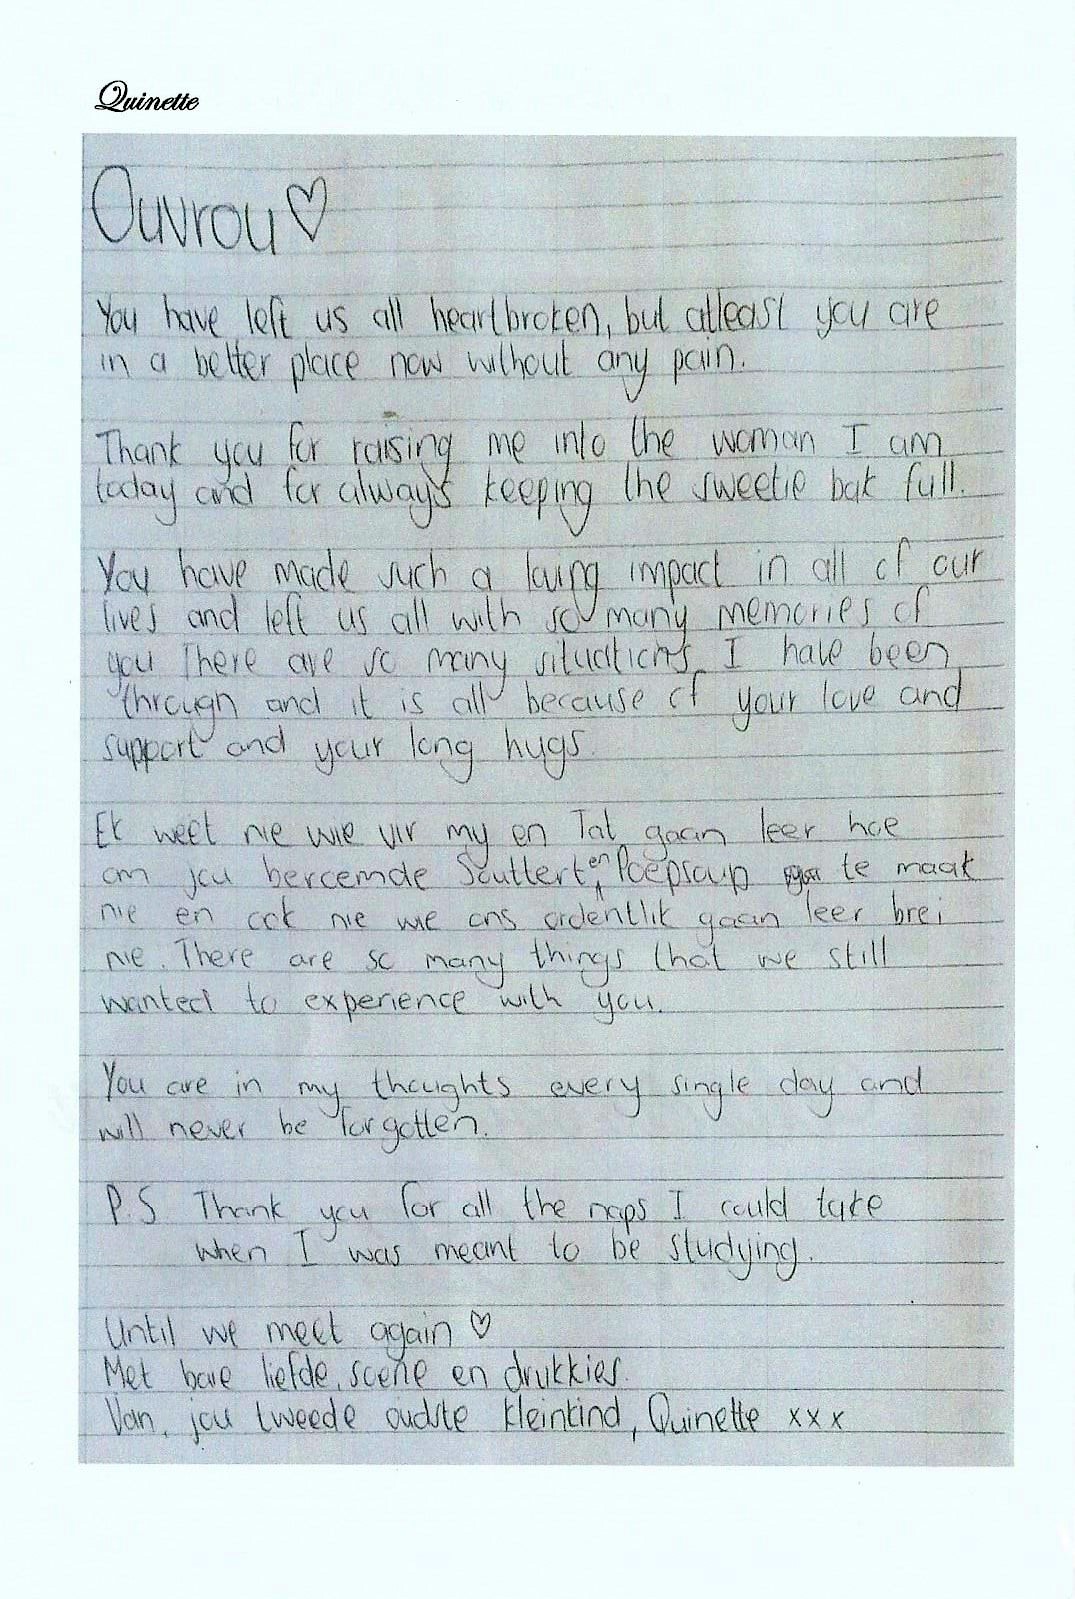 Quinette
Ouvrou ♡
You have left us all heartbroken, but atleast you are
in a better place now without any pain.
Thank you for raising me into the woman I am
today and for always keeping the sweetie bak full.
You have made such a loving impact in all of our
lives and left us all with so many memories of
you There are so many situations I have been
through and it is all because of your love and
support and your long hugs.
Ek weet nie wie vir my en Tat gaan leer hoe
om jou beroemde Souttert en Poepsoup te maak
nie en ook nie wie ons ordentlik gaan leer brei
nie. There are so many things that we still
wanted to experience with you.
You are in my thoughts every single day and
will never be forgotten.
P.S Thank you for all the naps I could take
when I was meant to be studying.
Until we meet again ♡
Met baie liefde, soene en drukkies.
Van, jou tweede oudste kleinkind, Quinette xxx